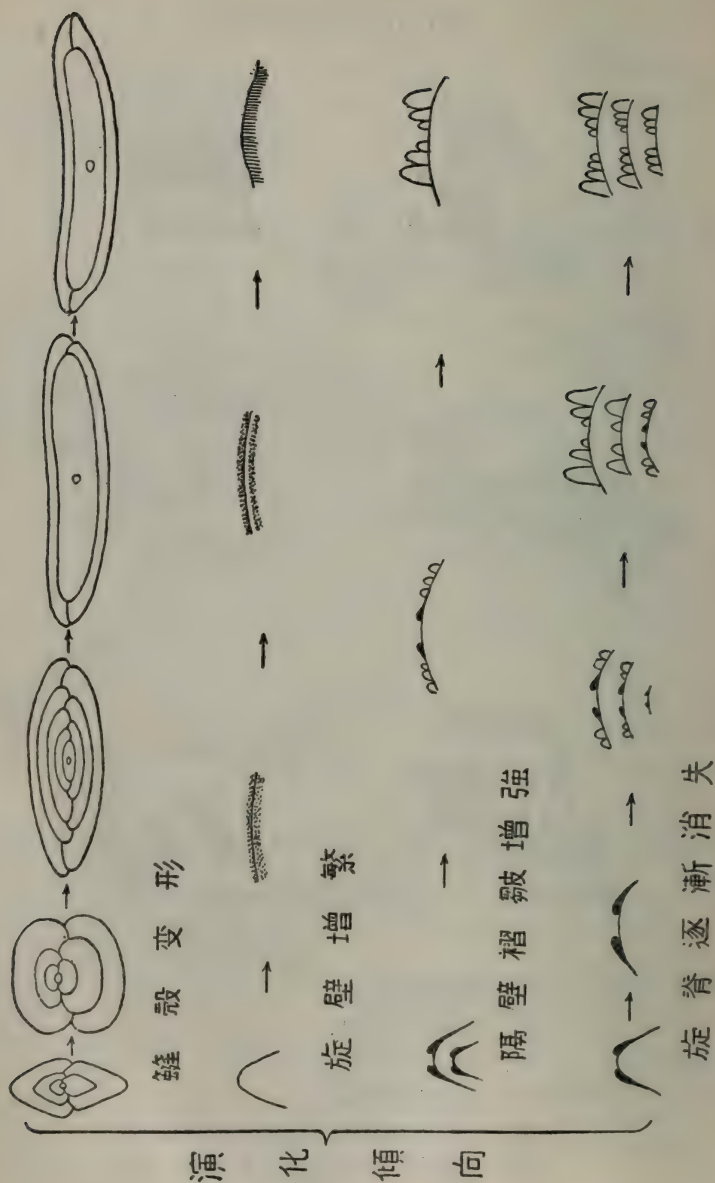 演化傾向
䗴殼变形
旋壁增繁
隔壁褶皺增強
旋脊逐漸消失